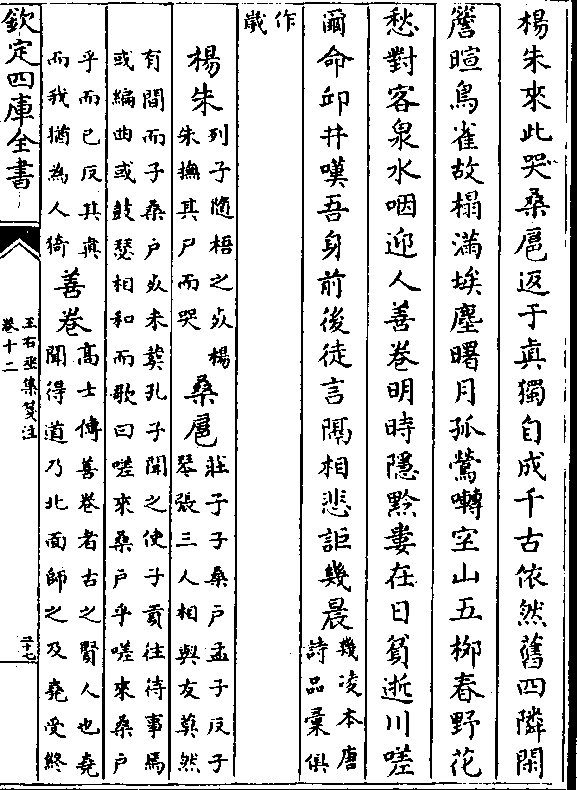 楊朱來此哭桑扈返于真獨自成千古依然舊四隣閑
簷暄鳥雀故榻滿埃塵曙月孤鶯囀空山五柳春野花
愁對客泉水咽迎人善卷明時隱黔婁在日貧逝川嗟
爾命邱井嘆吾身前後徒言隔相悲詎幾晨幾凌本唐
詩品彚俱
作
歲
楊朱列子隨梧之死楊
朱撫其尸而哭桑扈莊子子桑戶孟子反子
琴張三人相與友莫然
有間而子桑戶死未葬孔子聞之使子貢往待事焉
或編曲或鼓瑟相和而歌曰嗟來桑戶乎嗟來桑戶
乎而已反其真
而我猶為人猗善卷高士傳善卷者古之賢人也堯
聞得道乃北面師之及堯受終
欽定四庫全書
王右丞集箋注
卷十二
二十七